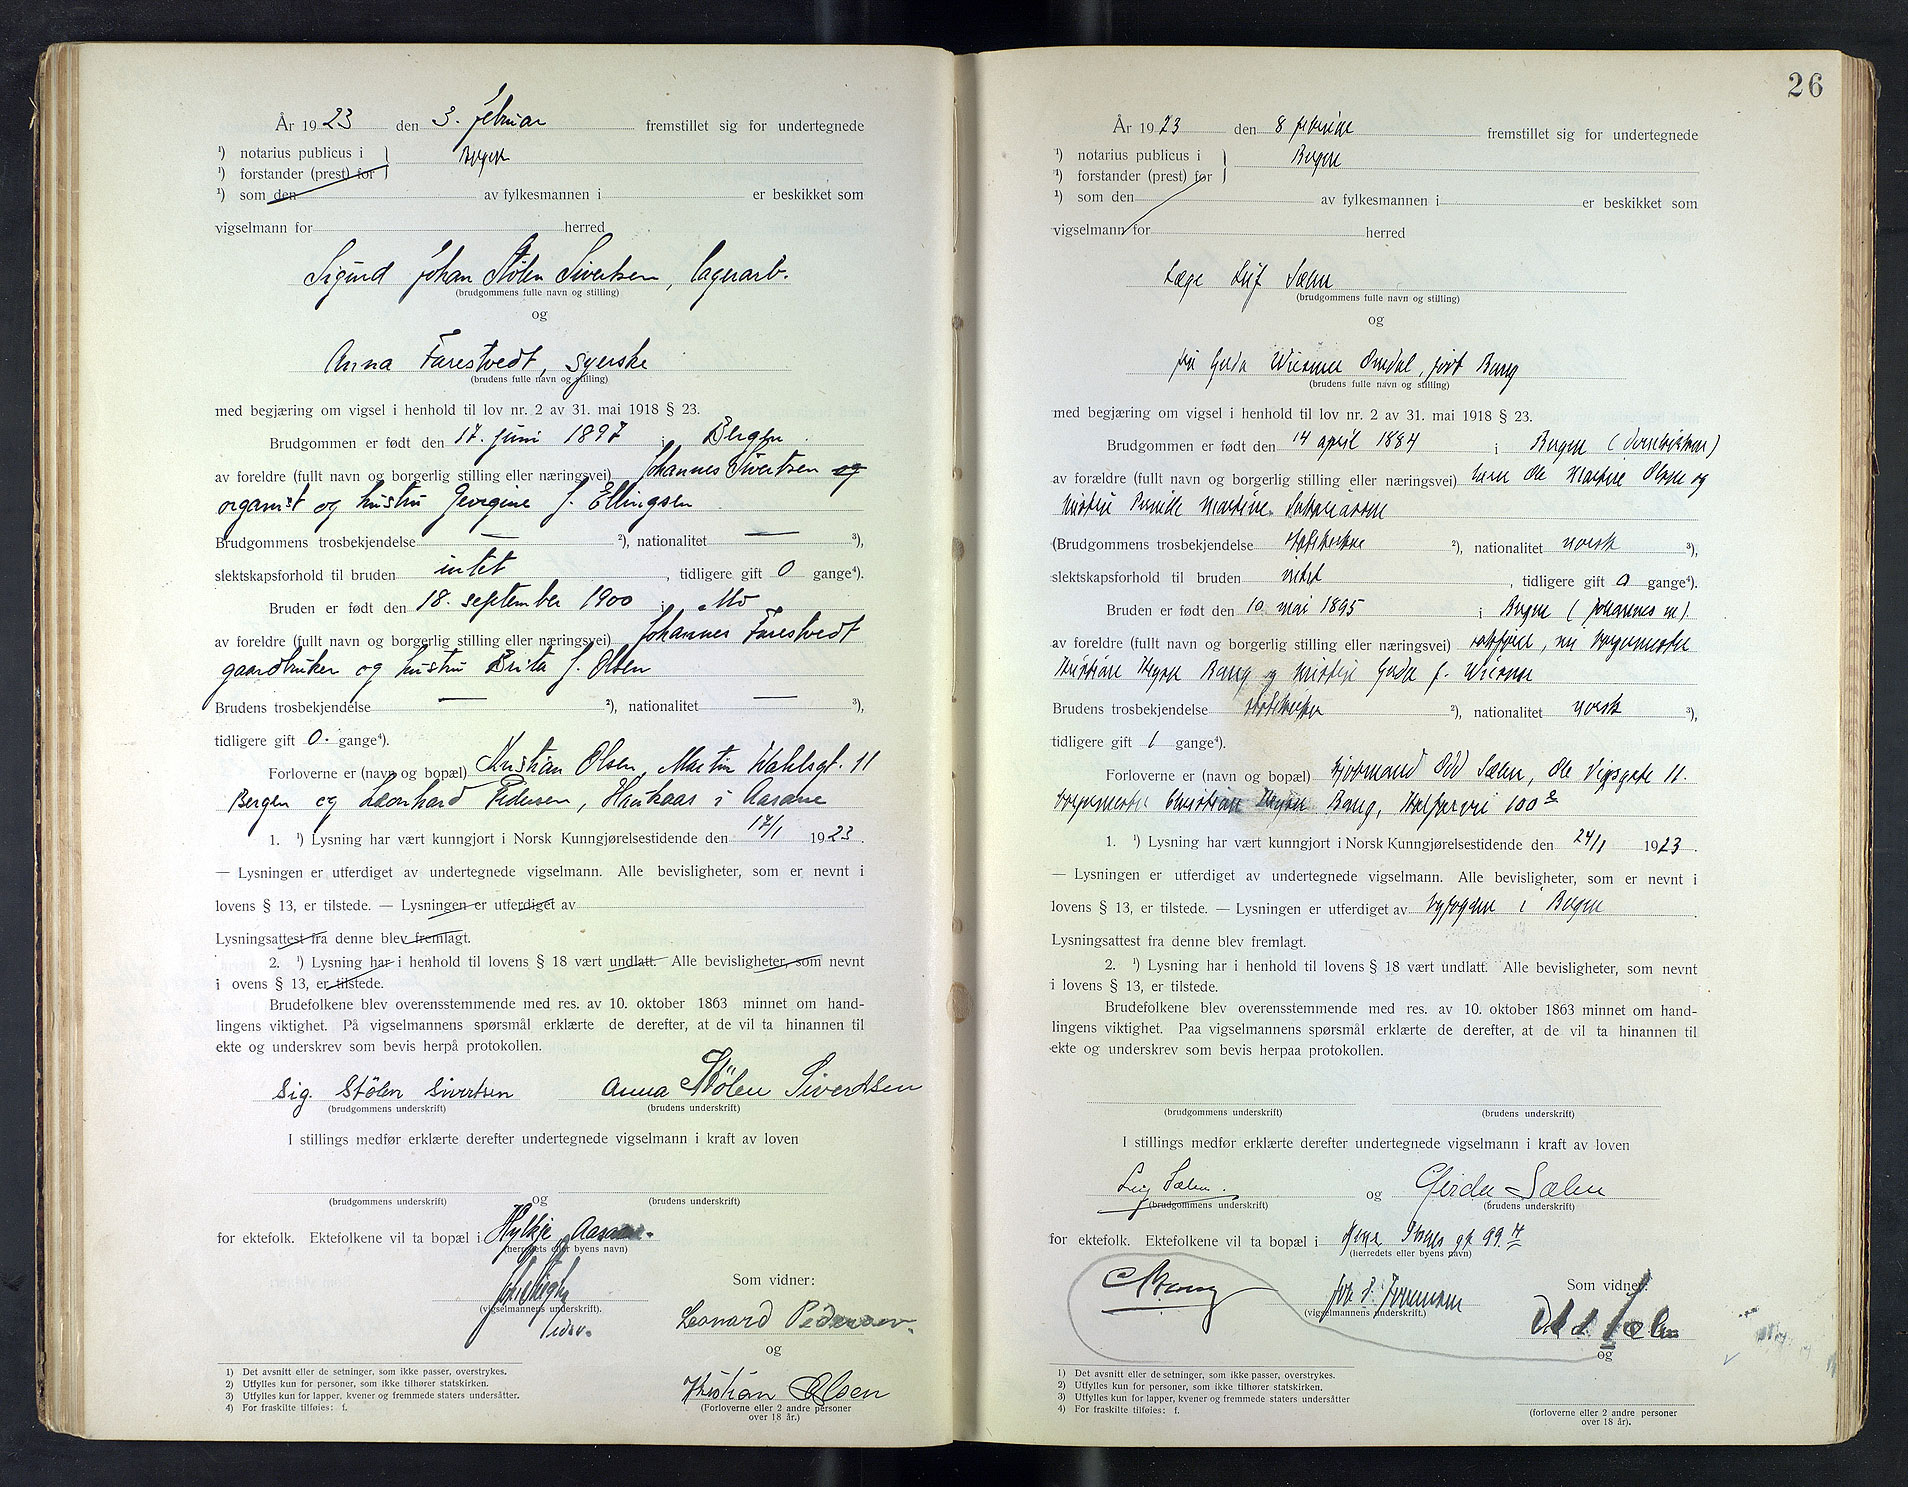 År 1923 den 3. februar fremstillet sig for undertegnede
¹) notarius publicus i Bergen
¹) forstander (prest) for
¹) som den av fylkesmannen i er beskikket som
vigselmann for herred
Sigurd Johan Stølen Sivertsen, lagerarb.
(brudgommens fulle navn og stilling)
og
Anna Farestvedt, syerske
(brudens fulle navn og stilling)
med begjæring om vigsel i henhold til lov nr. 2 av 31. mai 1918 § 23.
Brudgommen er født den 17. juni 1897 i Bergen.
av foreldre (fullt navn og borgerlig stilling eller næringsvei) Johannes Sivertsen og
organist og hustru Georgine f. Ellingsen
Brudgommens trosbekjendelse — ²), nationalitet — ³),
slektskapsforhold til bruden intet, tidligere gift 0 gange⁴).
Bruden er født den 18. september 1900 i Mo
av foreldre (fullt navn og borgerlig stilling eller næringsvei) Johannes Farestvedt
gaardbruker og hustru Brita f. Olsen
Brudens trosbekjendelse — ²), nationalitet — ³),
tidligere gift 0. gange⁴).
Forloverne er (navn og bopæl) Kristian Olsen, Martin Wahlsgt. 11
Bergen og Leonhard Pedersen, Haukaas i Aasane
1. ¹) Lysning har vært kunngjort i Norsk Kunngjørelsestidende den 17/1 1923.
— Lysningen er utferdiget av undertegnede vigselmann. Alle bevisligheter, som er nevnt i
lovens § 13, er tilstede. — Lysningen er utferdiget av
Lysningsattest fra denne blev fremlagt.
2. ¹) Lysning har i henhold til lovens § 18 vært undlatt. Alle bevisligheter, som nevnt
i ovens § 13, er tilstede.
Brudefolkene blev overensstemmende med res. av 10. oktober 1863 minnet om hand-
lingens viktighet. På vigselmannens spørsmål erklærte de derefter, at de vil ta hinannen til
ekte og underskrev som bevis herpå protokollen.
Sig. Stölen Sivertsen Anna Stølen Sivertsen
(brudgommens underskrift) (brudens underskrift)
I stillings medfør erklærte derefter undertegnede vigselmann i kraft av loven
og
(brudgommens underskrift) (brudens underskrift)
for ektefolk. Ektefolkene vil ta bopæl i Hylkje Aasane.
(herredets eller byens navn)
Som vidner:
(vigselmannens underskrift).
Leonard Pedersen.
og
Kristian Olsen
(Forloverne eller 2 andre personer
over 18 år.)
1) Det avsnitt eller de setninger, som ikke passer, overstrykes.
2) Utfylles kun for personer, som ikke tilhører statskirken.
3) Utfylles kun for lapper, kvener og fremmede staters undersåtter.
4) For fraskilte tilføies: f.
26
År 1923 den 8 februar fremstillet sig for undertegnede
¹) notarius publicus i Bergen
¹) forstander (prest) for
¹) som den av fylkesmannen i er beskikket som
vigselmann for herred
Læge Leif Sælen
(brudgommens fulle navn og stilling)
og
fru Gerda Wiesener Omdal, født Bang
(brudens fulle navn og stilling)
med begjæring om vigsel i henhold til lov nr. 2 av 31. mai 1918 § 23.
Brudgommen er født den 14 april 1884 i Bergen (Domkirken)
av forældre (fullt navn og borgerlig stilling eller næringsvei) Ole Martin Olsen og
hustru Pernille Martine Sakariassen
(Brudgommens trosbekjendelse statskirken ²), nationalitet norsk ³),
slektskapsforhold til bruden intet, tidligere gift 0 gange⁴).
Bruden er født den 10 mai 1895 i Bergen (Johannes m)
av foreldre (fullt navn og borgerlig stilling eller næringsvei) sakfører, nu borgermester
Kristian Meyer Bang og hustru Gerda f. Wiesener
Brudens trosbekjendelse statskirken ²), nationalitet norsk ³),
tidligere gift 1 gange⁴).
Forloverne er (navn og bopæl) Odd Sælen, Ole Vigsgate 11.
borgermester Christian Meyer Bang, Kalfarvei 100
1. ¹) Lysning har vært kunngjort i Norsk Kunngjørelsestidende den 24/1 1923.
— Lysningen er utferdiget av undertegnede vigselmann. Alle bevisligheter, som er nevnt i
lovens § 13, er tilstede. — Lysningen er utferdiget av byfogden i Bergen
Lysningsattest fra denne blev fremlagt.
2. ¹) Lysning har i henhold til lovens § 18 vært undlatt. Alle bevisligheter, som nevnt
i lovens § 13, er tilstede.
Brudefolkene blev overensstemmende med res. av 10. oktober 1863 minnet om hand-
lingens viktighet. Paa vigselmannens spørsmål erklærte de derefter, at de vil ta hinannen til
ekte og underskrev som bevis herpaa protokollen.
(brudgommens underskrift) (brudens underskrift)
I stillings medfør erklærte derefter undertegnede vigselmann i kraft av loven
Leif Sælen. og Gerda Sælen
(brudgommens underskrift) (brudens underskrift)
for ektefolk. Ektefolkene vil ta bopæl i gt 99
(herredets eller byens navn)
Som vidner:
C Bang
(vigselmannens underskrift.)
Odd Sælen
og
1) Det avsnitt eller de setninger, som ikke passer, overstrykes.
2) Utfylles kun for personer, som ikke tilhører statskirken.
3) Utfylles kun for lapper, kvener og fremmede staters undersåtter
4) For fraskilte tilføies: f.
(forloverne eller 2 andre personer
over 18 år).